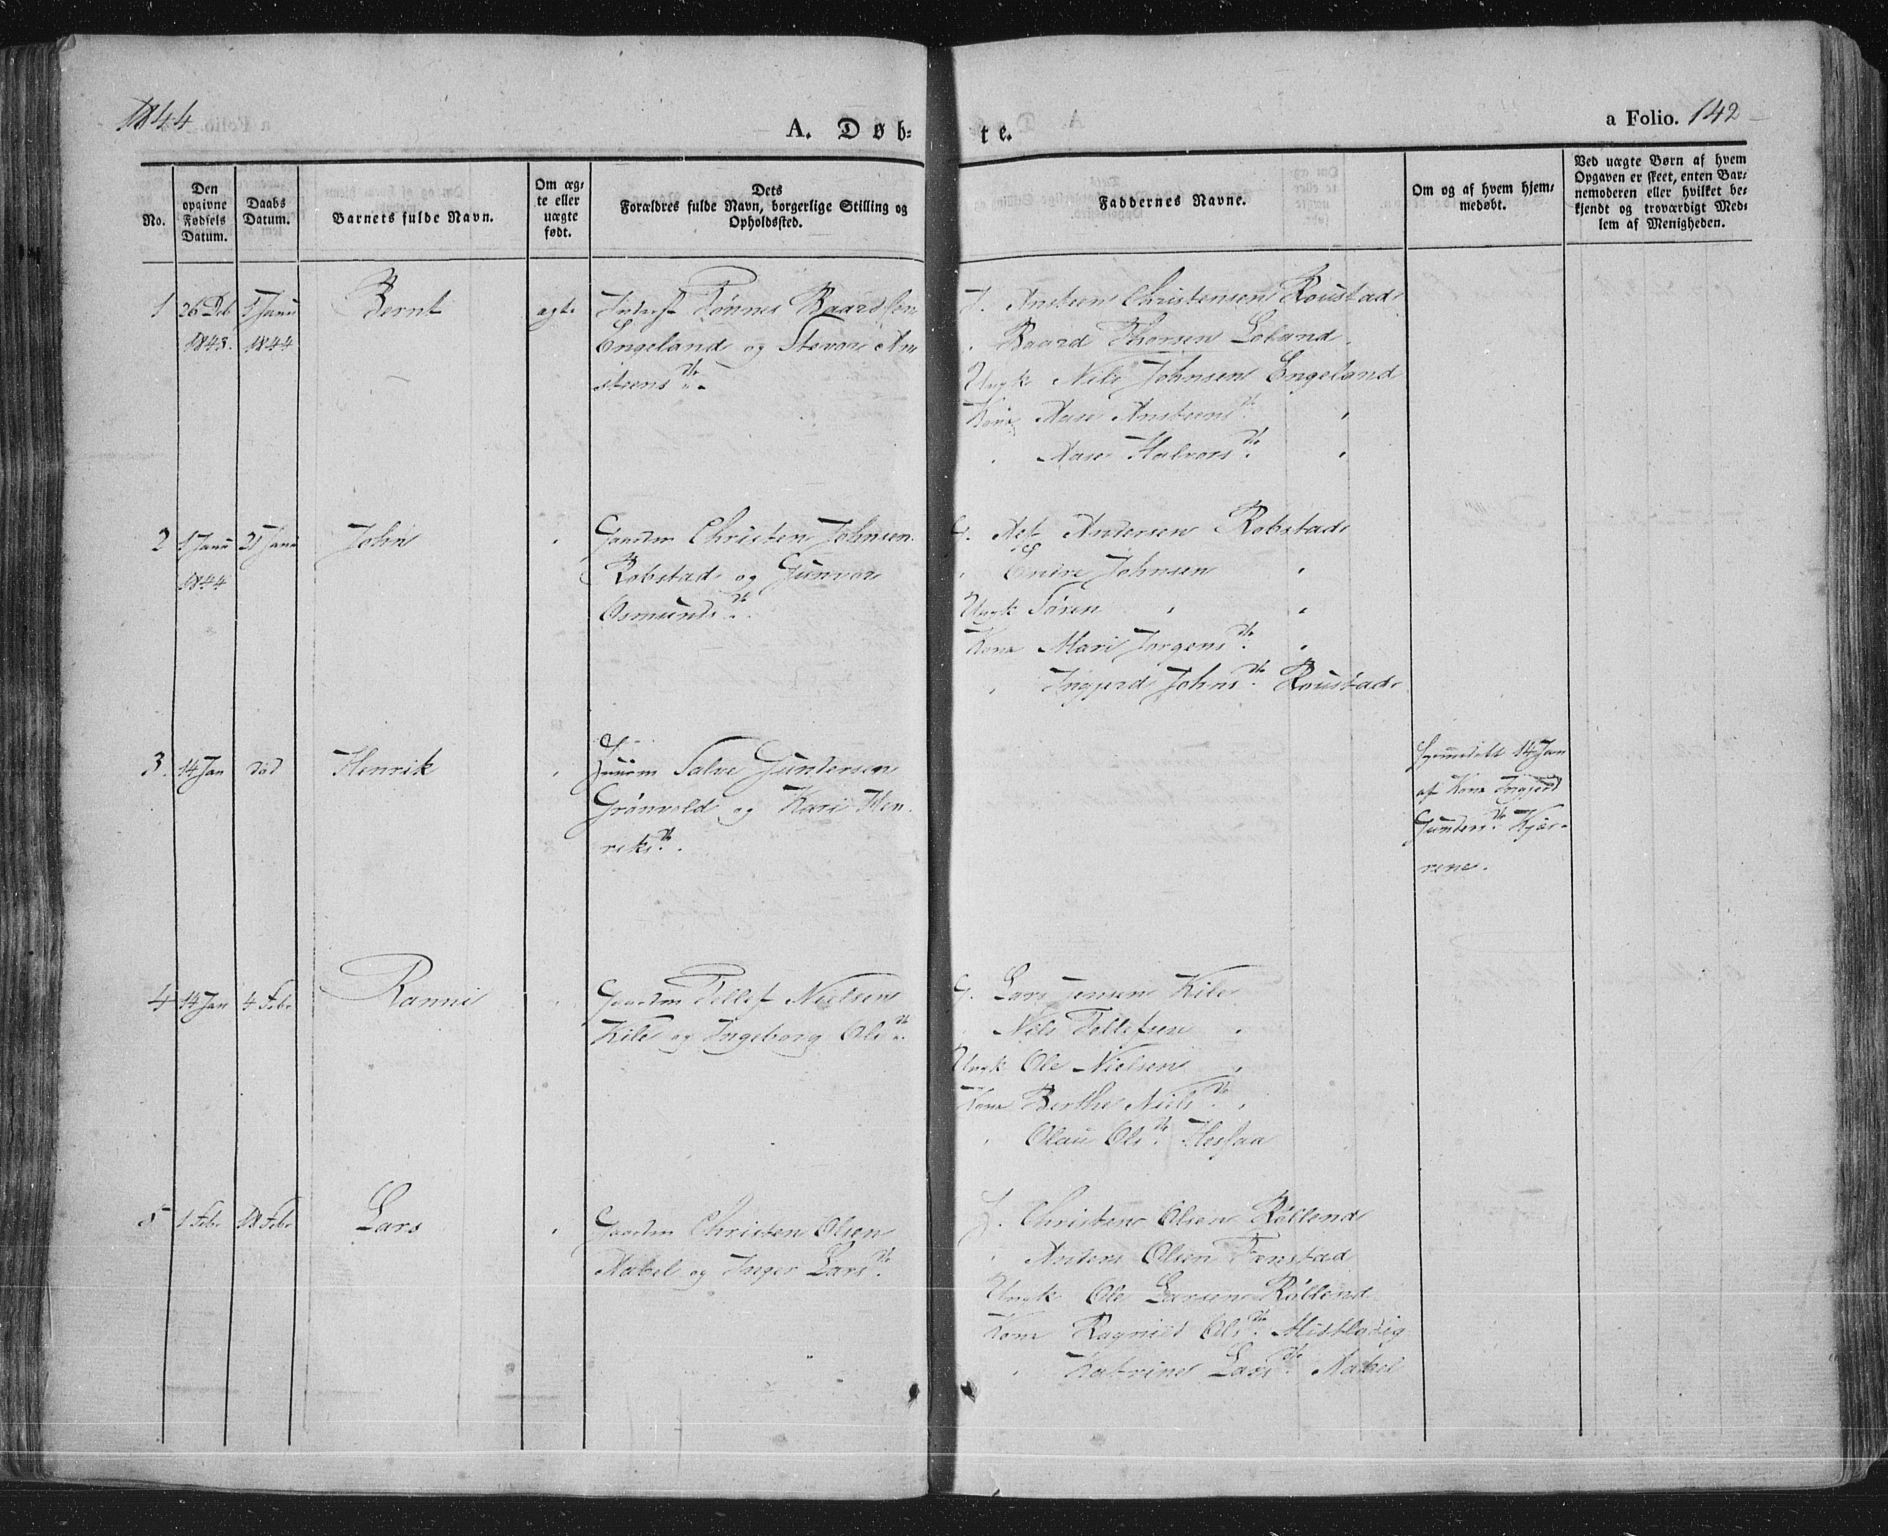 1844
A. Døb-
te.
a Folio. 142
No.
Den opgivne Fødsels Datum.
Daabs Datum.
Barnets fulde Navn.
Om ægte eller uægte født.
Dets Forældres fulde Navn, borgerlige Stilling og Opholdssted.
Faddernes Navne.
Om og af hvem hjemmedøbt.
Ved uægte Børn af hvem Opgaven er skeet, enten Barnemoderen eller hvilket bekjendt og troværdigt Medlem af Menigheden.
1
26 Deb 1843.
1844
Bernt
ægte
Tønnes Baardsen
Engeland og
steens Dr.
Ansteen Christensen Roustad
Baard Thorsen Loland
Ungk Nils Johnsen Engeland
Kone Aase Ansteens Dr. "
" Aase Halvors Dr. "
2
1 Janu 1844
21 Janu
John
"
Gaardm Christen Johnsen
Robstad og Gunvor
Osmunds Dr.
G. Andersen Robstad
" Johnsen "
Ungk Søren " "
Kone Mari Jørgens Dr. "
" Ingjerd Johns Dr. Roustad
3.
14 Jan
død
Henrik
"
Huusm Salve Gundersen
Grønvold og Kari Hen-
riks Dr.
Hjemmedøbt 14 Jan
af Kone Ingjerd
Gunders Dr. Kjær-
rene.
4
14 Jan
4 Febr
Ranni
"
Gaardm Tellef Nielsen
Kile og Ingeborg Ols Dr.
G. Lars Jensen Kile
" Nils Tellefsen "
Ungk Ole Nielsen "
Kone Berthe Niels Dr. "
" Olau Ols Dr. Hesaa
5
1 Febr
18 Febr
Lars
"
Gaardm Christen Olsen
Mabel og Inger Lars Dr.
G. Christen Olsen Røllend
" Anders Olsen
Ungk Ole Larsen Røllend
Kone Ragnild Ols Dr.
" Katrine Lars Dr. Mabel